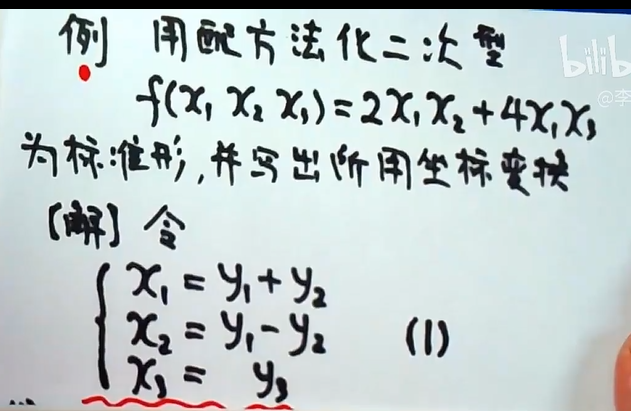 例 用配方法化二次型
f(x₁ x₂ x₃)=2x₁x₂+4x₁x₃
为标准形,并写出所用坐标变换
[解] 令
x₁ = y₁+y₂
x₂ = y₁-y₂ (1)
x₃ = y₃
bilib
@李